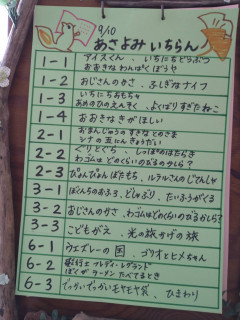 9/10
あさよみ いちらん
1-1 アイスくん、いちにちどうぶつ
おおきなわんぱくぼうや
1-2 おじさんのかさ、ふしぎなナイフ
1-3 いちにちおもちゃ
あめのひのえんそく、よくばりすぎたねこ
1-4 おおきな きがほしい
2-1 おまんじゅうのすきなとのさま
シナの五にんきょうだい
2-2 ぐりとぐら、しっぽのはたらき
わゴムはどのくらいのびるかしら?
2-3 ぴょんぴょん ぱたもち、ルラルさんのじてんしゃ
3-1 ぼくんちのおふろ、どしゃぶり、たいふうがくる
3-2 おじさんのかさ、わゴムはどのくらいのびるかしら?
3-3 こどもがえ、光の旅かげの旅
6-1 ウエズレーの国、ゴリオとヒメちゃん
6-2 飛行士フレディ・レグランド
ぼくがラーメンたべてるとき
6-3 でっかいでっかいモヤモヤ袋、ひまわり